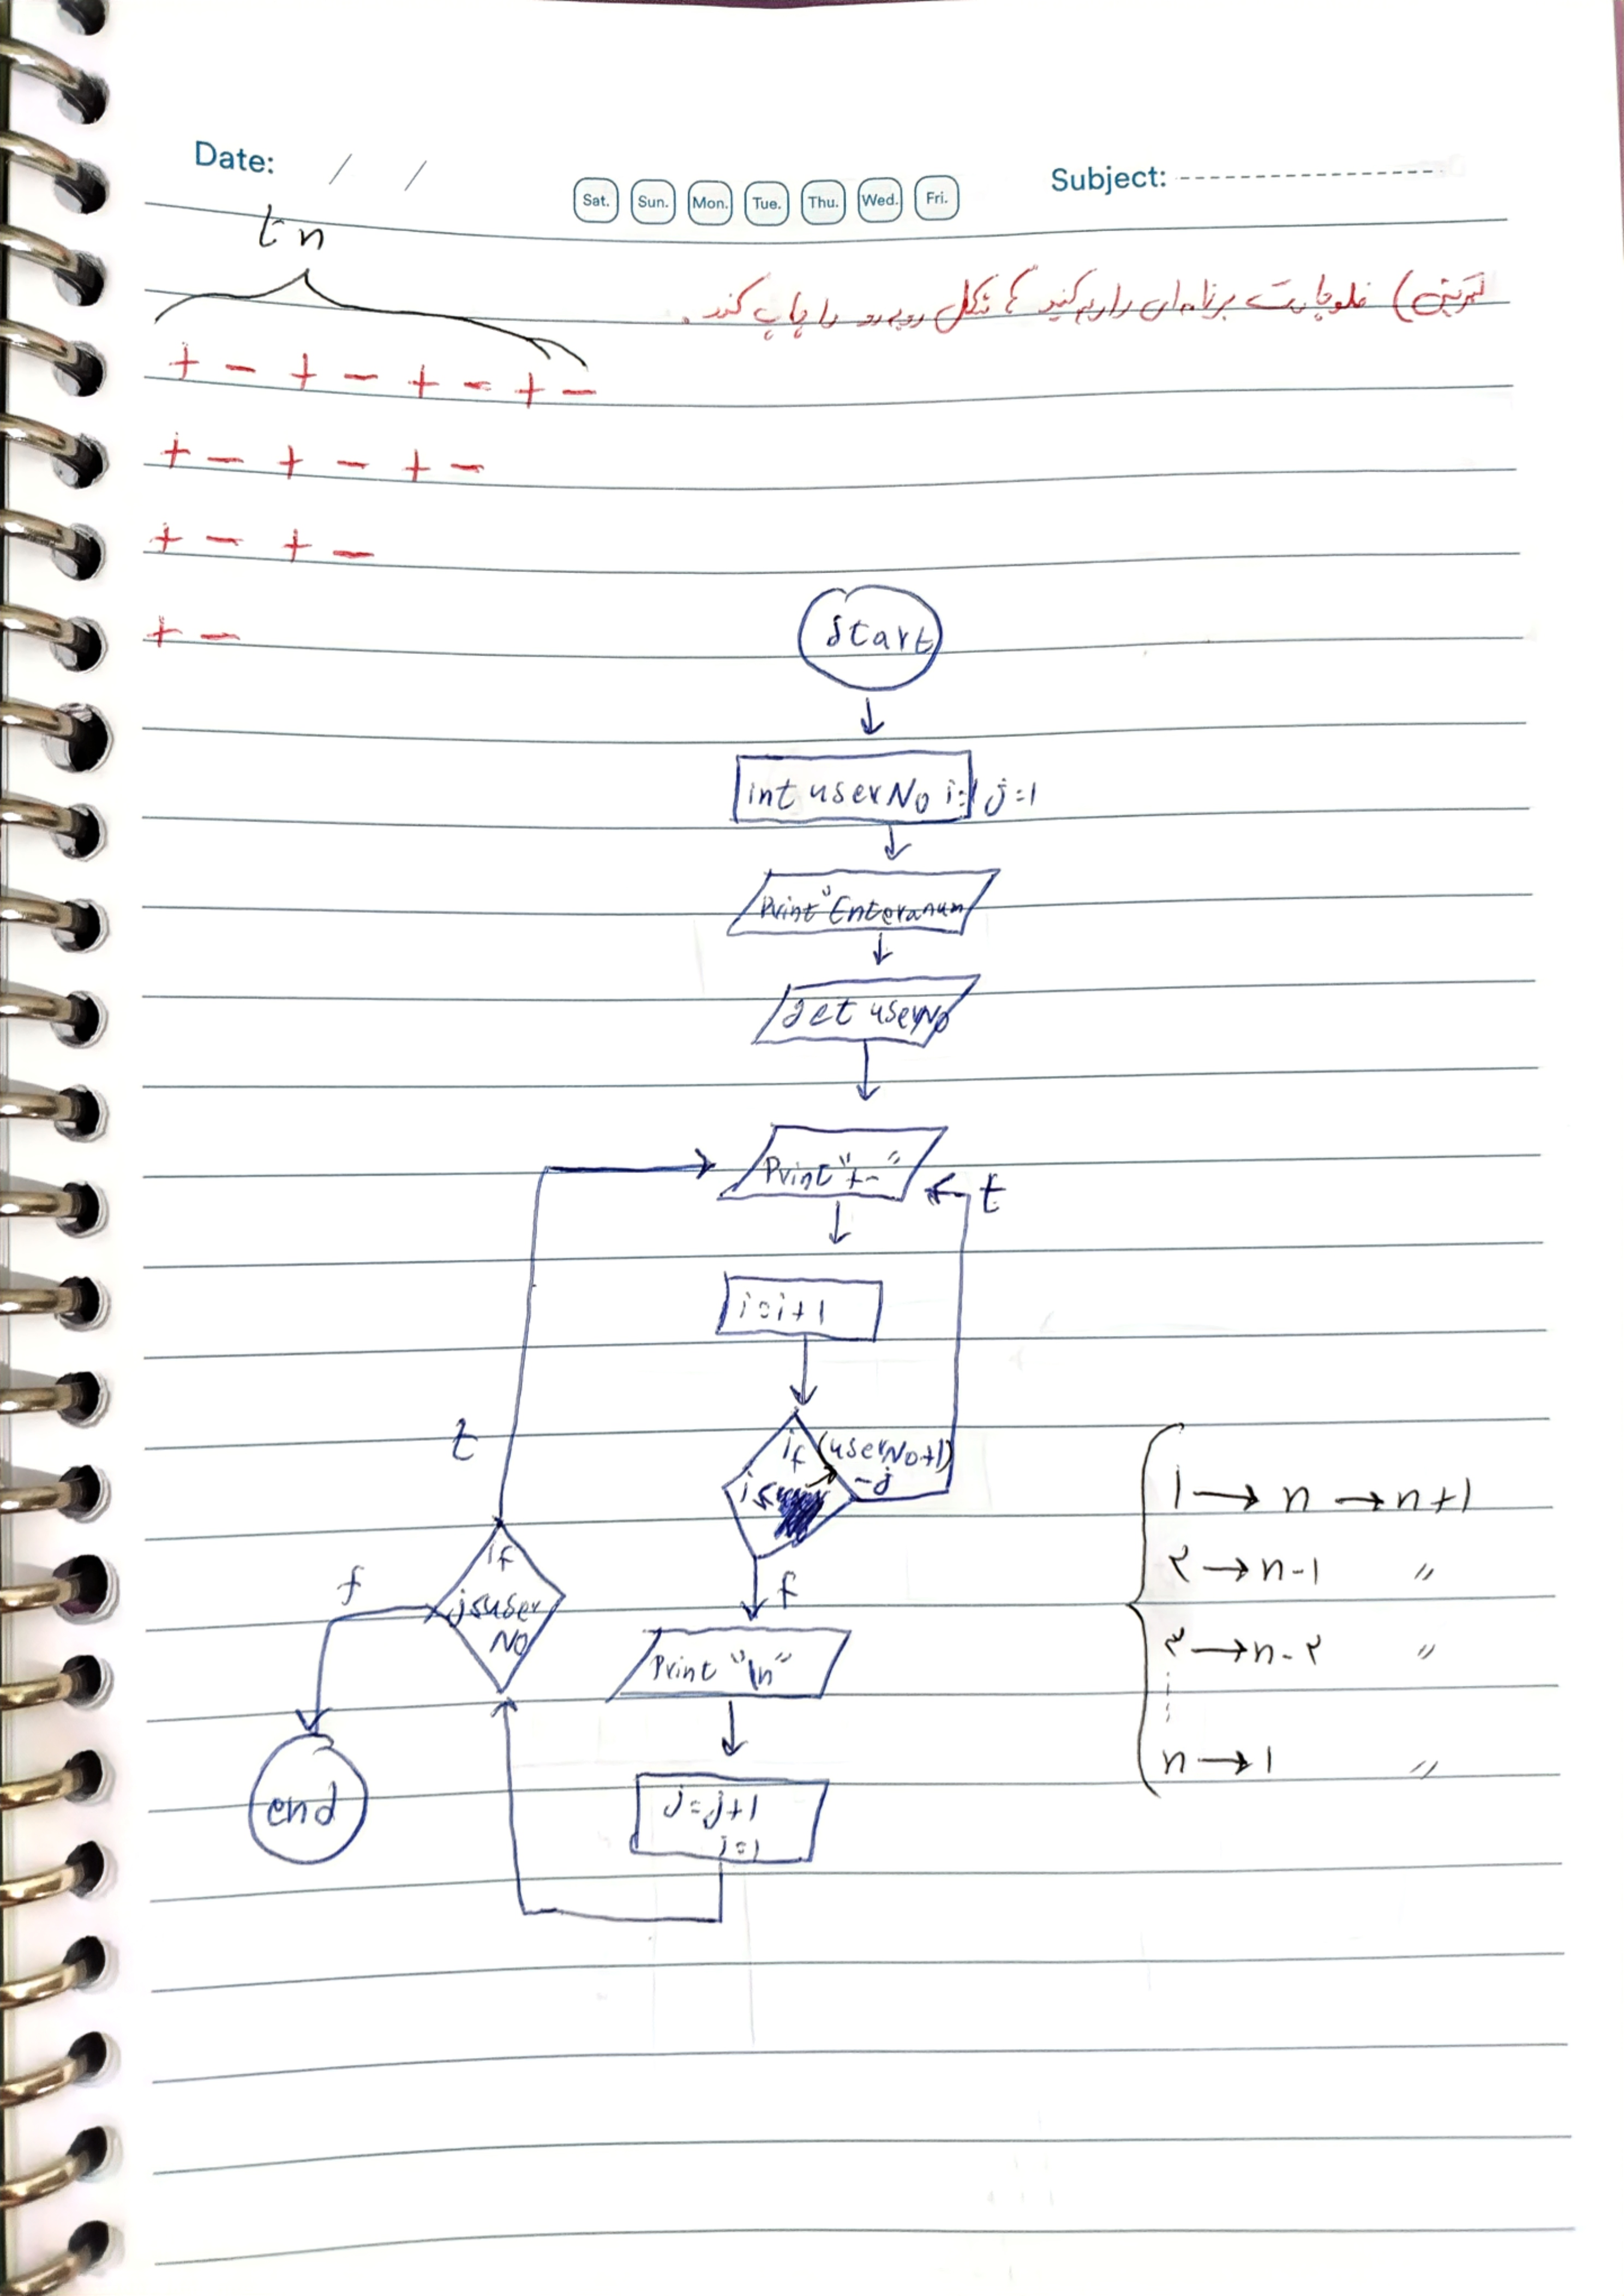 Date: / /
Sat. Sun. Mon. Tue. Thu. Wed. Fri.
Subject:
t n
تمرین) فلوچارت برنامه‌ای را رسم کنید که شکل روبه‌رو را چاپ کند.
+ - + - + - + -
+ - + - + -
+ - + -
+ -
Start
int userNo i=1 j=1
Print "Enter a num
get userNo
Print "+-"
t
i=i+1
t
if
(userNo+1)
-j
i≤
f
Print "\n"
j=j+1
i=1
if
j≤user
No
f
end
1 → n → n+1
۲ → n-1 "
۳ → n-۲ "
n → 1 "